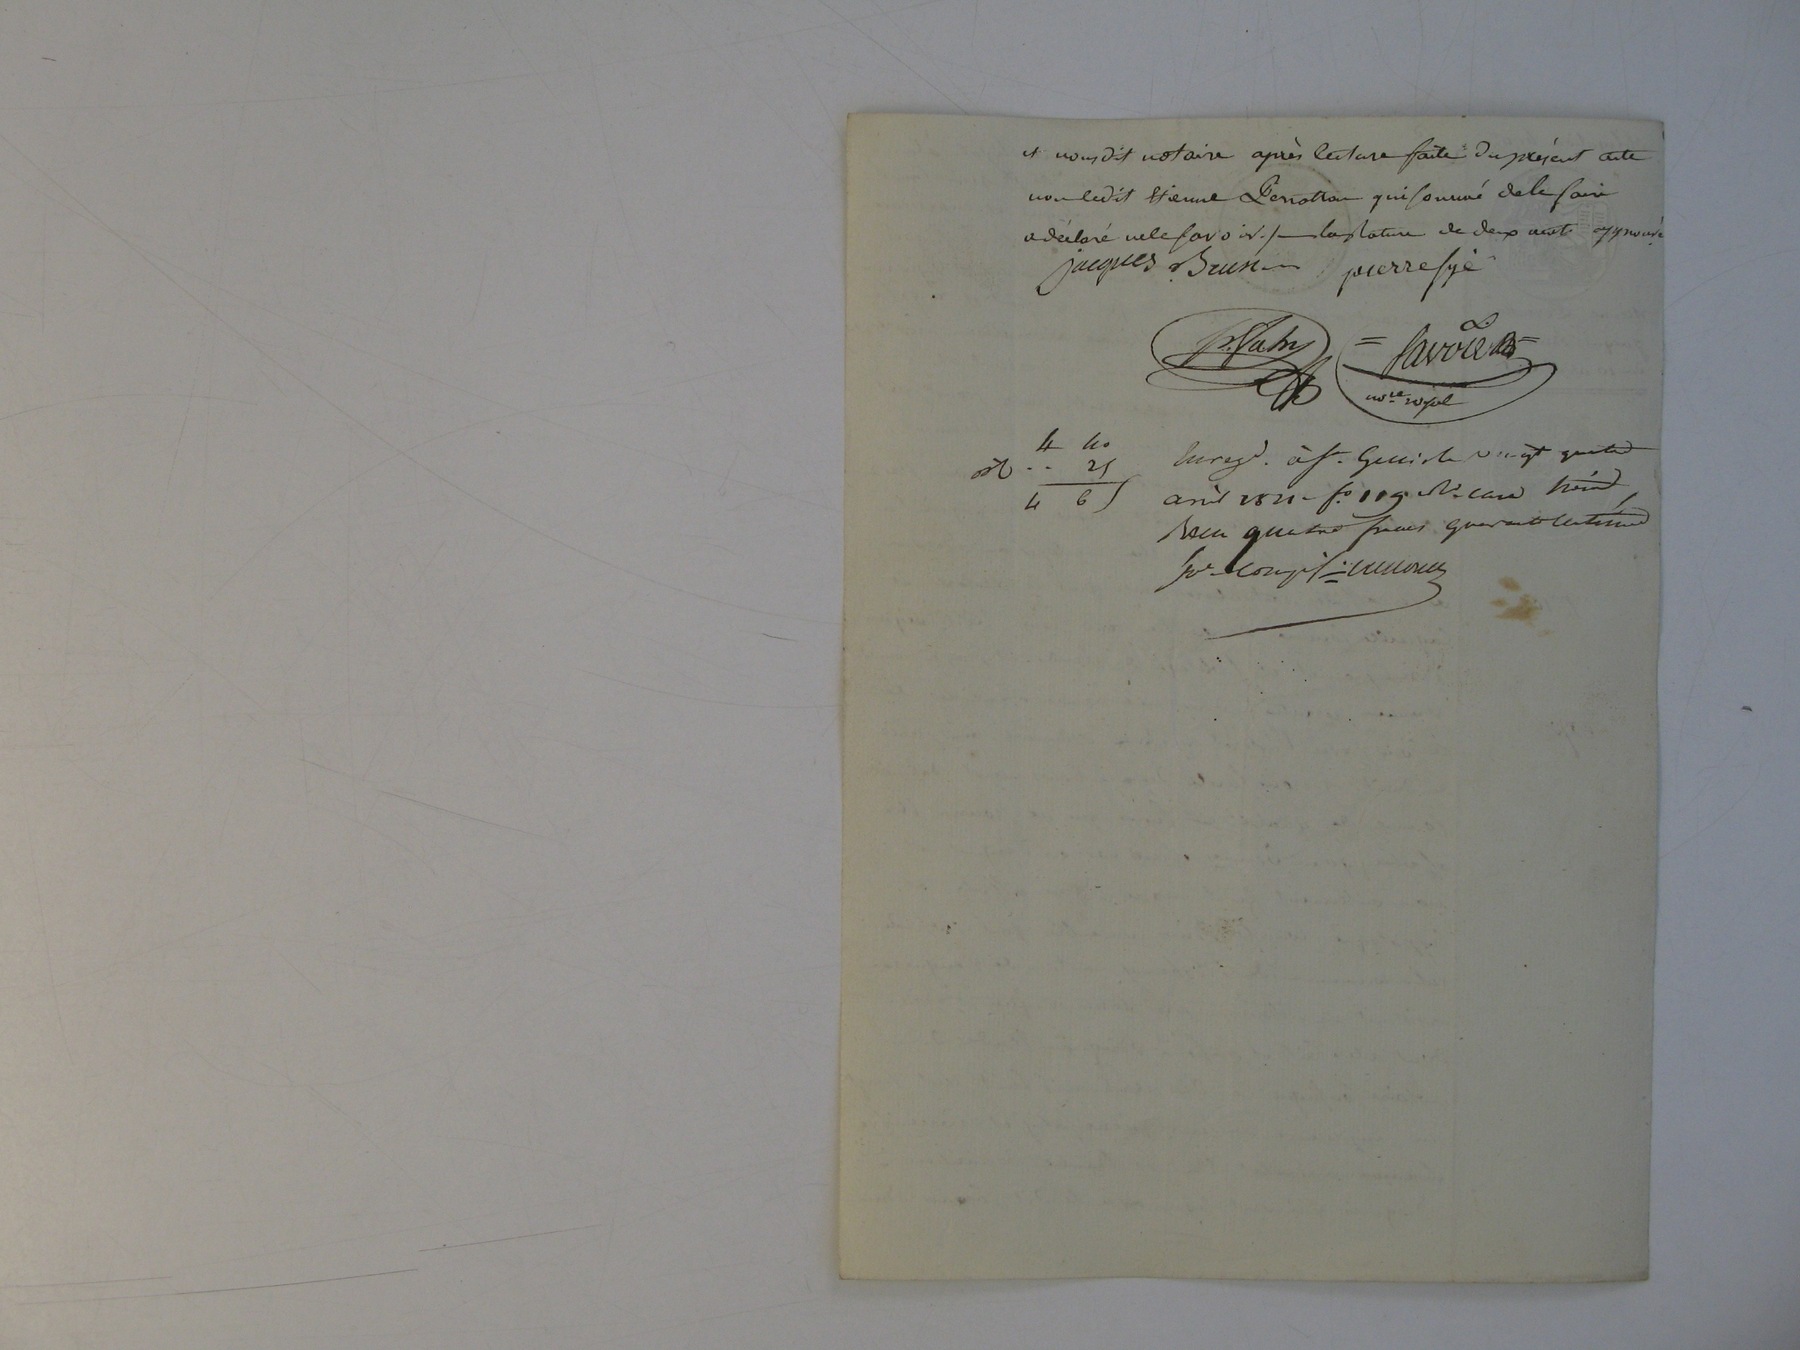 et nousdit notaire après lecture faite du présent acte
non ledit Etienne qui sommé de le faire
a déclaré ne le savoir / la rature de deux mots approuvé
jacques Brun pierre
Savoie
nore. royal
4 40
25
4 65
Enregé. à St. Genis le vingt quatre
avril 1821 fo. 119 Ro. case
Reçu quatre francs quarante centimes